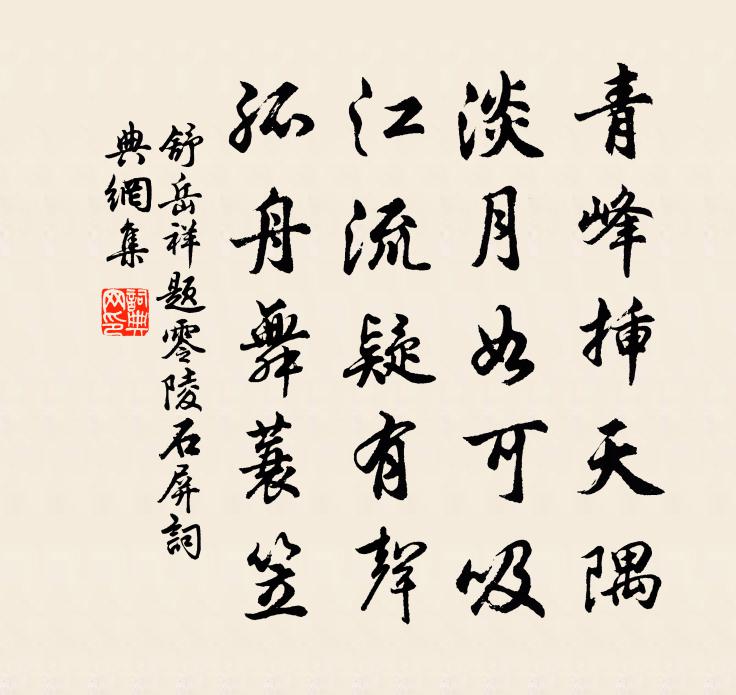 青峰挿天隅
淡月如可吸
江流疑有聲
孤舟舞蓑笠
舒岳祥题零陵石屏詞
典網集
詞典
网印